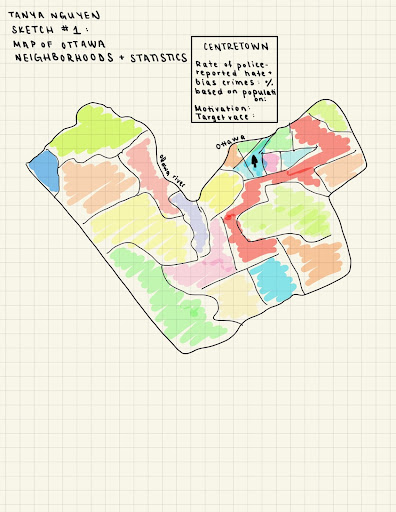 TANYA NGUYEN
SKETCH #1:
MAP OF OTTAWA
NEIGHBORHOODS + STATISTICS
CENTRETOWN
Rate of police-
reported hate +
bias crimes: %
based on populati
on:
Motivation:
Target race:
Ottawa
river